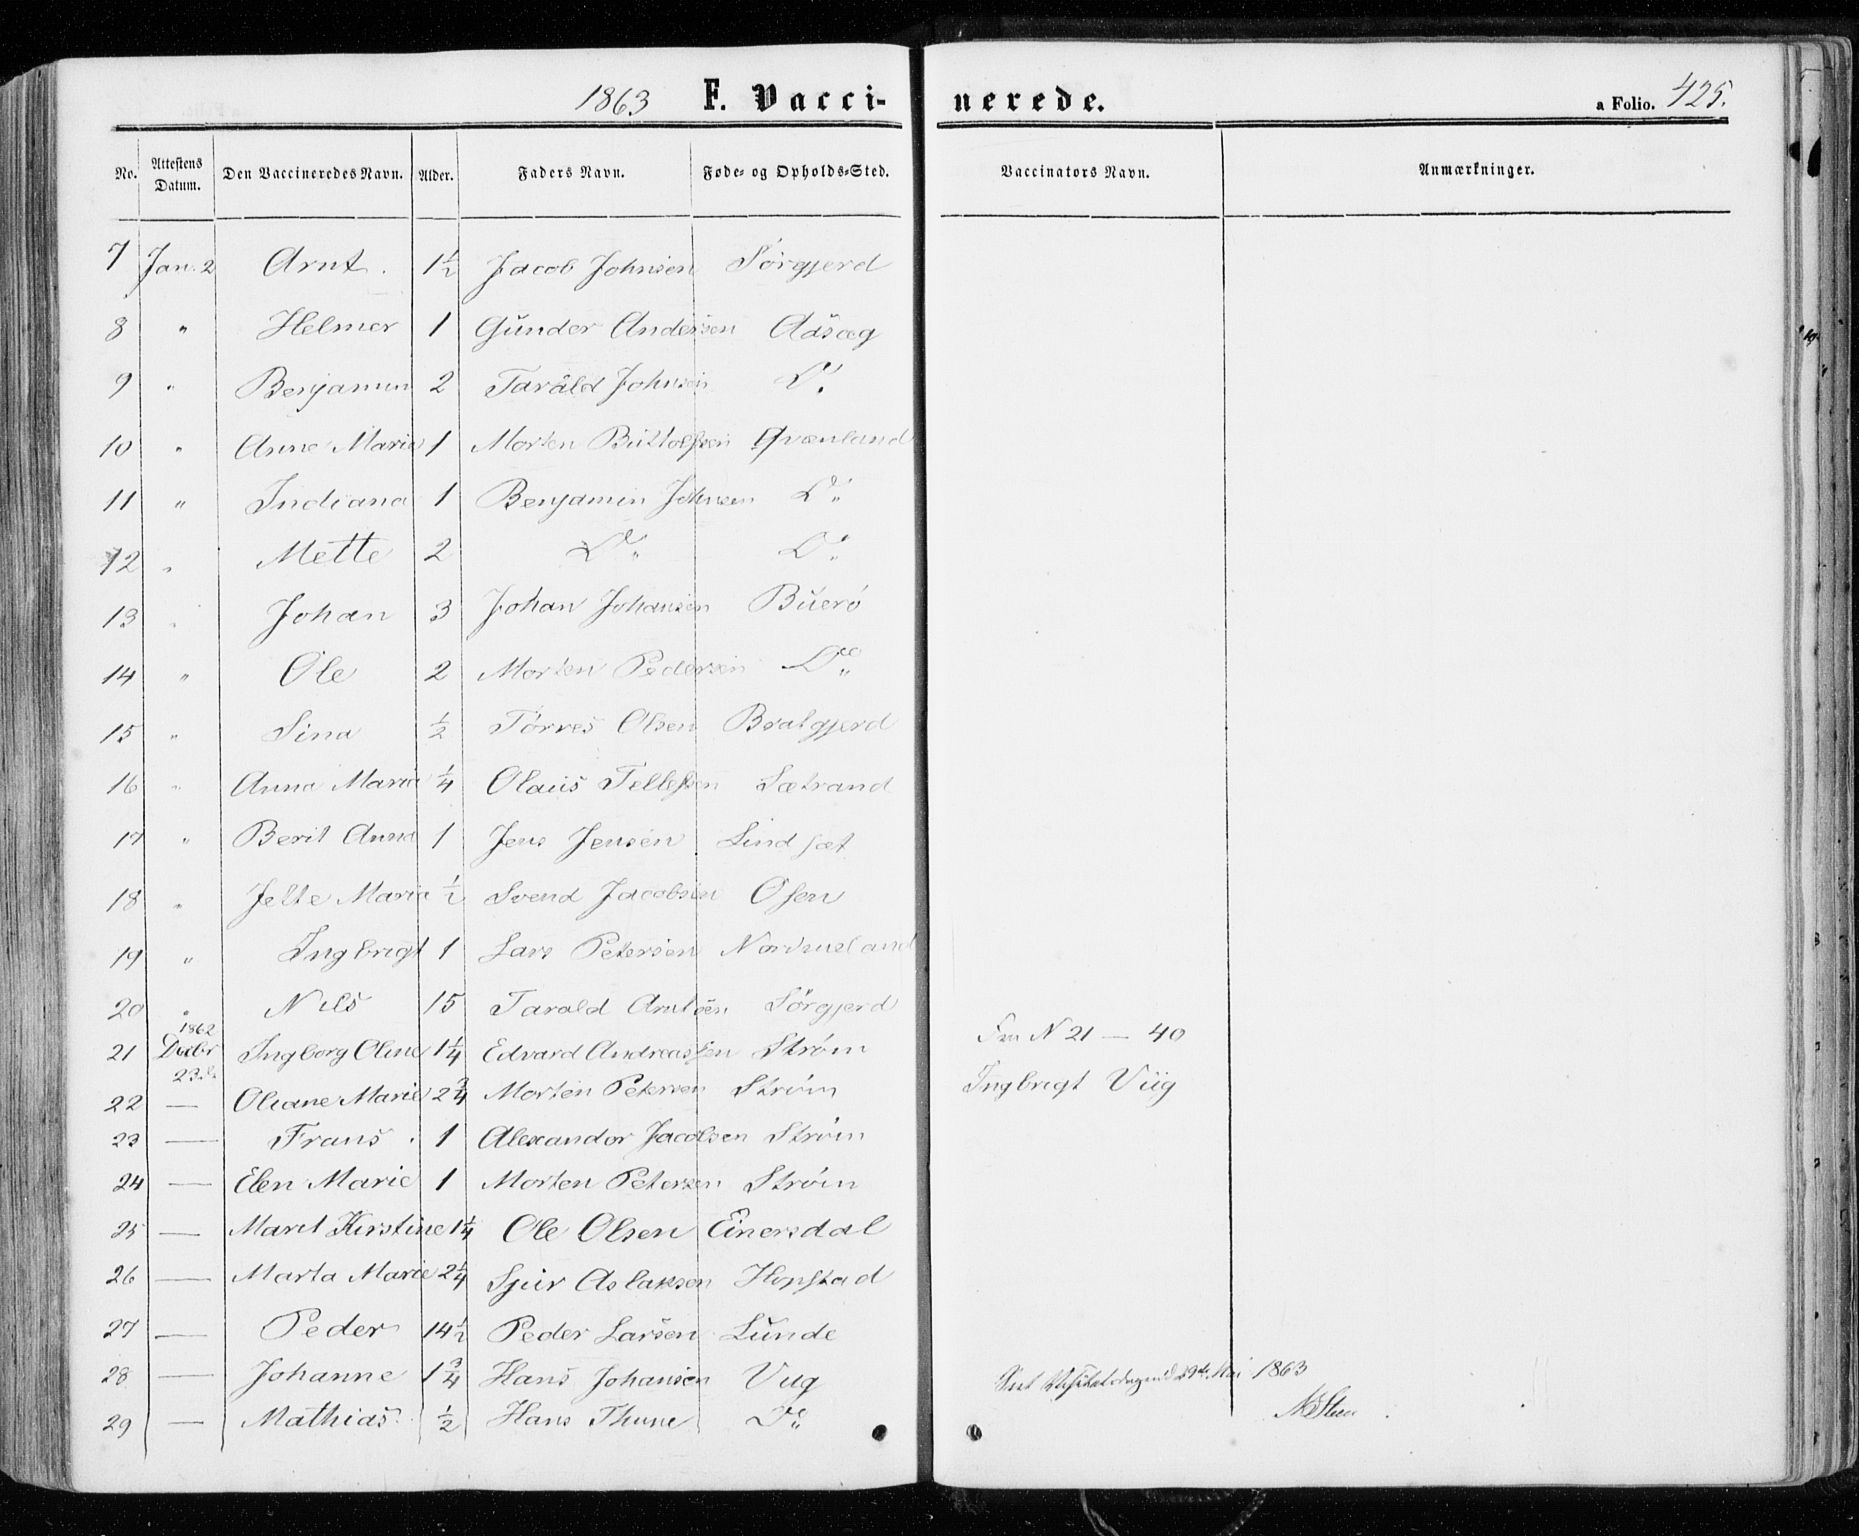 1863 F. Vacci-nerede. a Folio. 425.
No. Attestens Datum. Den Vaccineredes Navn. Alder. Faders Navn. Føde- og Opholds-Sted. Vaccinators Navn. Anmærkninger.
7 Jan. 2 Arnt. 1½ Jacob Johnsen Sörgjerd
8 " Helmer 1 Gunder Andersen Adsæg
9 " Benjamin 2 Tarald Johnsen Do.
10 " Anne Marie 1 Morten Buttolfsen Qvænland
11 " Indiana 1 Benjamin Johnsen Do "
12 " Mette 2 Do " Do "
13 " Johan 3 Johan Johansen Buerö
14 " Ole 2 Morten Pedersen Do "
15 " Sina ½ Törres Olsen Bratgjerd
16 " Anna Maria ¼ Olaus Tellefsen Sætrand
17 " Berit Anna 1 Jens Jensen Lindsæt
18 " Jette Maria ½ Svend Jacobsen Osen
19 " Ingbrigt 1 Lars Petersen Nordmeland
20 " Nils 15 Tarald Arntsen Sörgjerd
21 1862 Decbr 23de Ingborg Oline 1¼ Edvard Andreassen Strøm Fra N 21 — 40
22 — Oliane Marie 2¾ Morten Petersen Strøm Ingbrigt Viig
23 — Frans . 1 Alexander Jacobsen Strøm
24 — Elen Marie 1 Morten Petersen Strøm
25 — Marit Kirstine 1¼ Ole Olsen Einersdal
26 — Marta Marie 2¼ Sjur Aslaksen Hopstad
27 — Peder 14½ Peder Larsen Lunde
28 — Johanne 1¾ Hans Johansen Viig 1863
29 — Mathias. ½ Hans Thune Do "